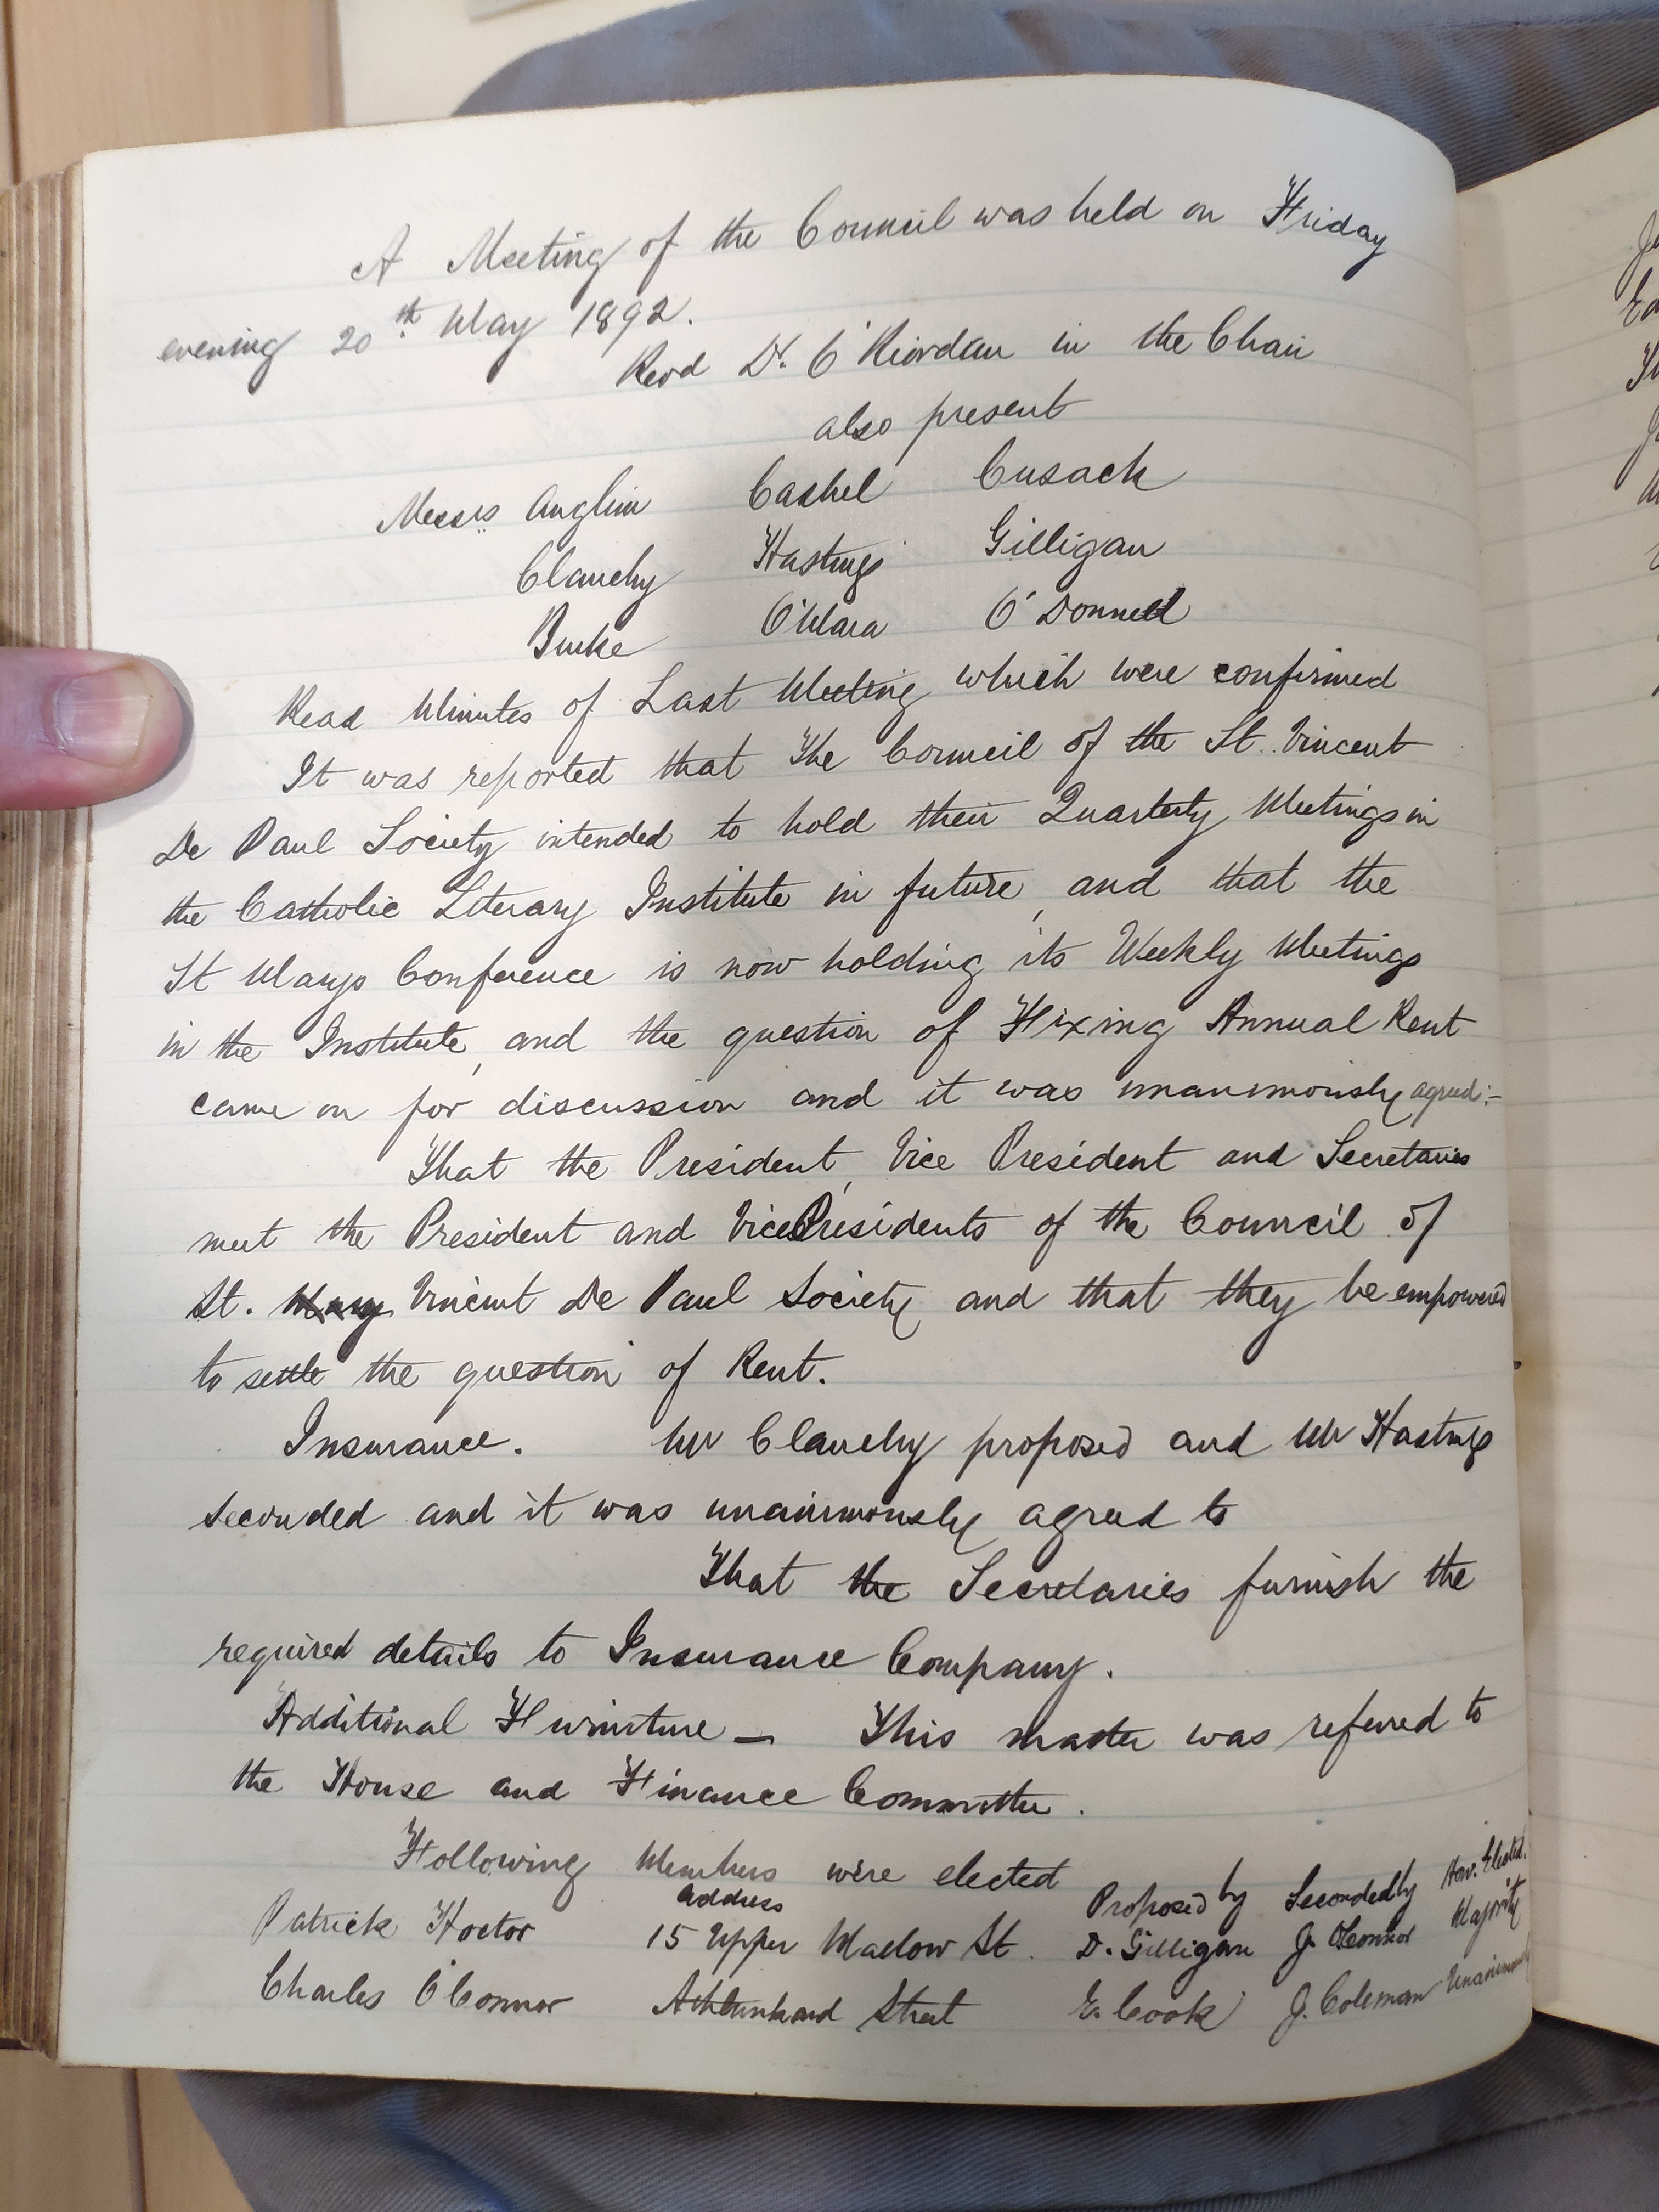 A Meeting of the Council was held on Friday
evening 20th May 1892.
Revd Dr. O'Riordan in the Chair
also present
Messrs Anglim Cashel Cusack
Clanchy Hastings Gilligan
Burke O'Mara O'Donnell
Read Minutes of Last Meeting which were confirmed
It was reported that The Council of the St. Vincent
De Paul Society intended to hold their Quarterly Meetings in
the Catholic Literary Institute in future, and that the
St Marys Conference is now holding its Weekly Meetings
in the Institute, and the question of Fixing Annual Rent
came on for discussion and it was unanimously agreed:-
That the President, Vice President and Secretaries
meet the President and Vice Presidents of the Council of
St. Mary Vincent De Paul Society and that they be empowered
to settle the question of Rent.
Insurance. Mr Clanchy proposed and Mr Hastings
seconded and it was unanimously agreed to
That the Secretaries furnish the
required details to Insurance Company.
Additional Furniture — This matter was referred to
the House and Finance Committee.
Following Members were elected
address Proposed by Seconded by How Elected.
Patrick Hoctor 15 Upper Mallow St. D. Gilligan J. O'Connor Majority
Charles O'Connor Athlunkard Street E. Cook J. Coleman Unanimously